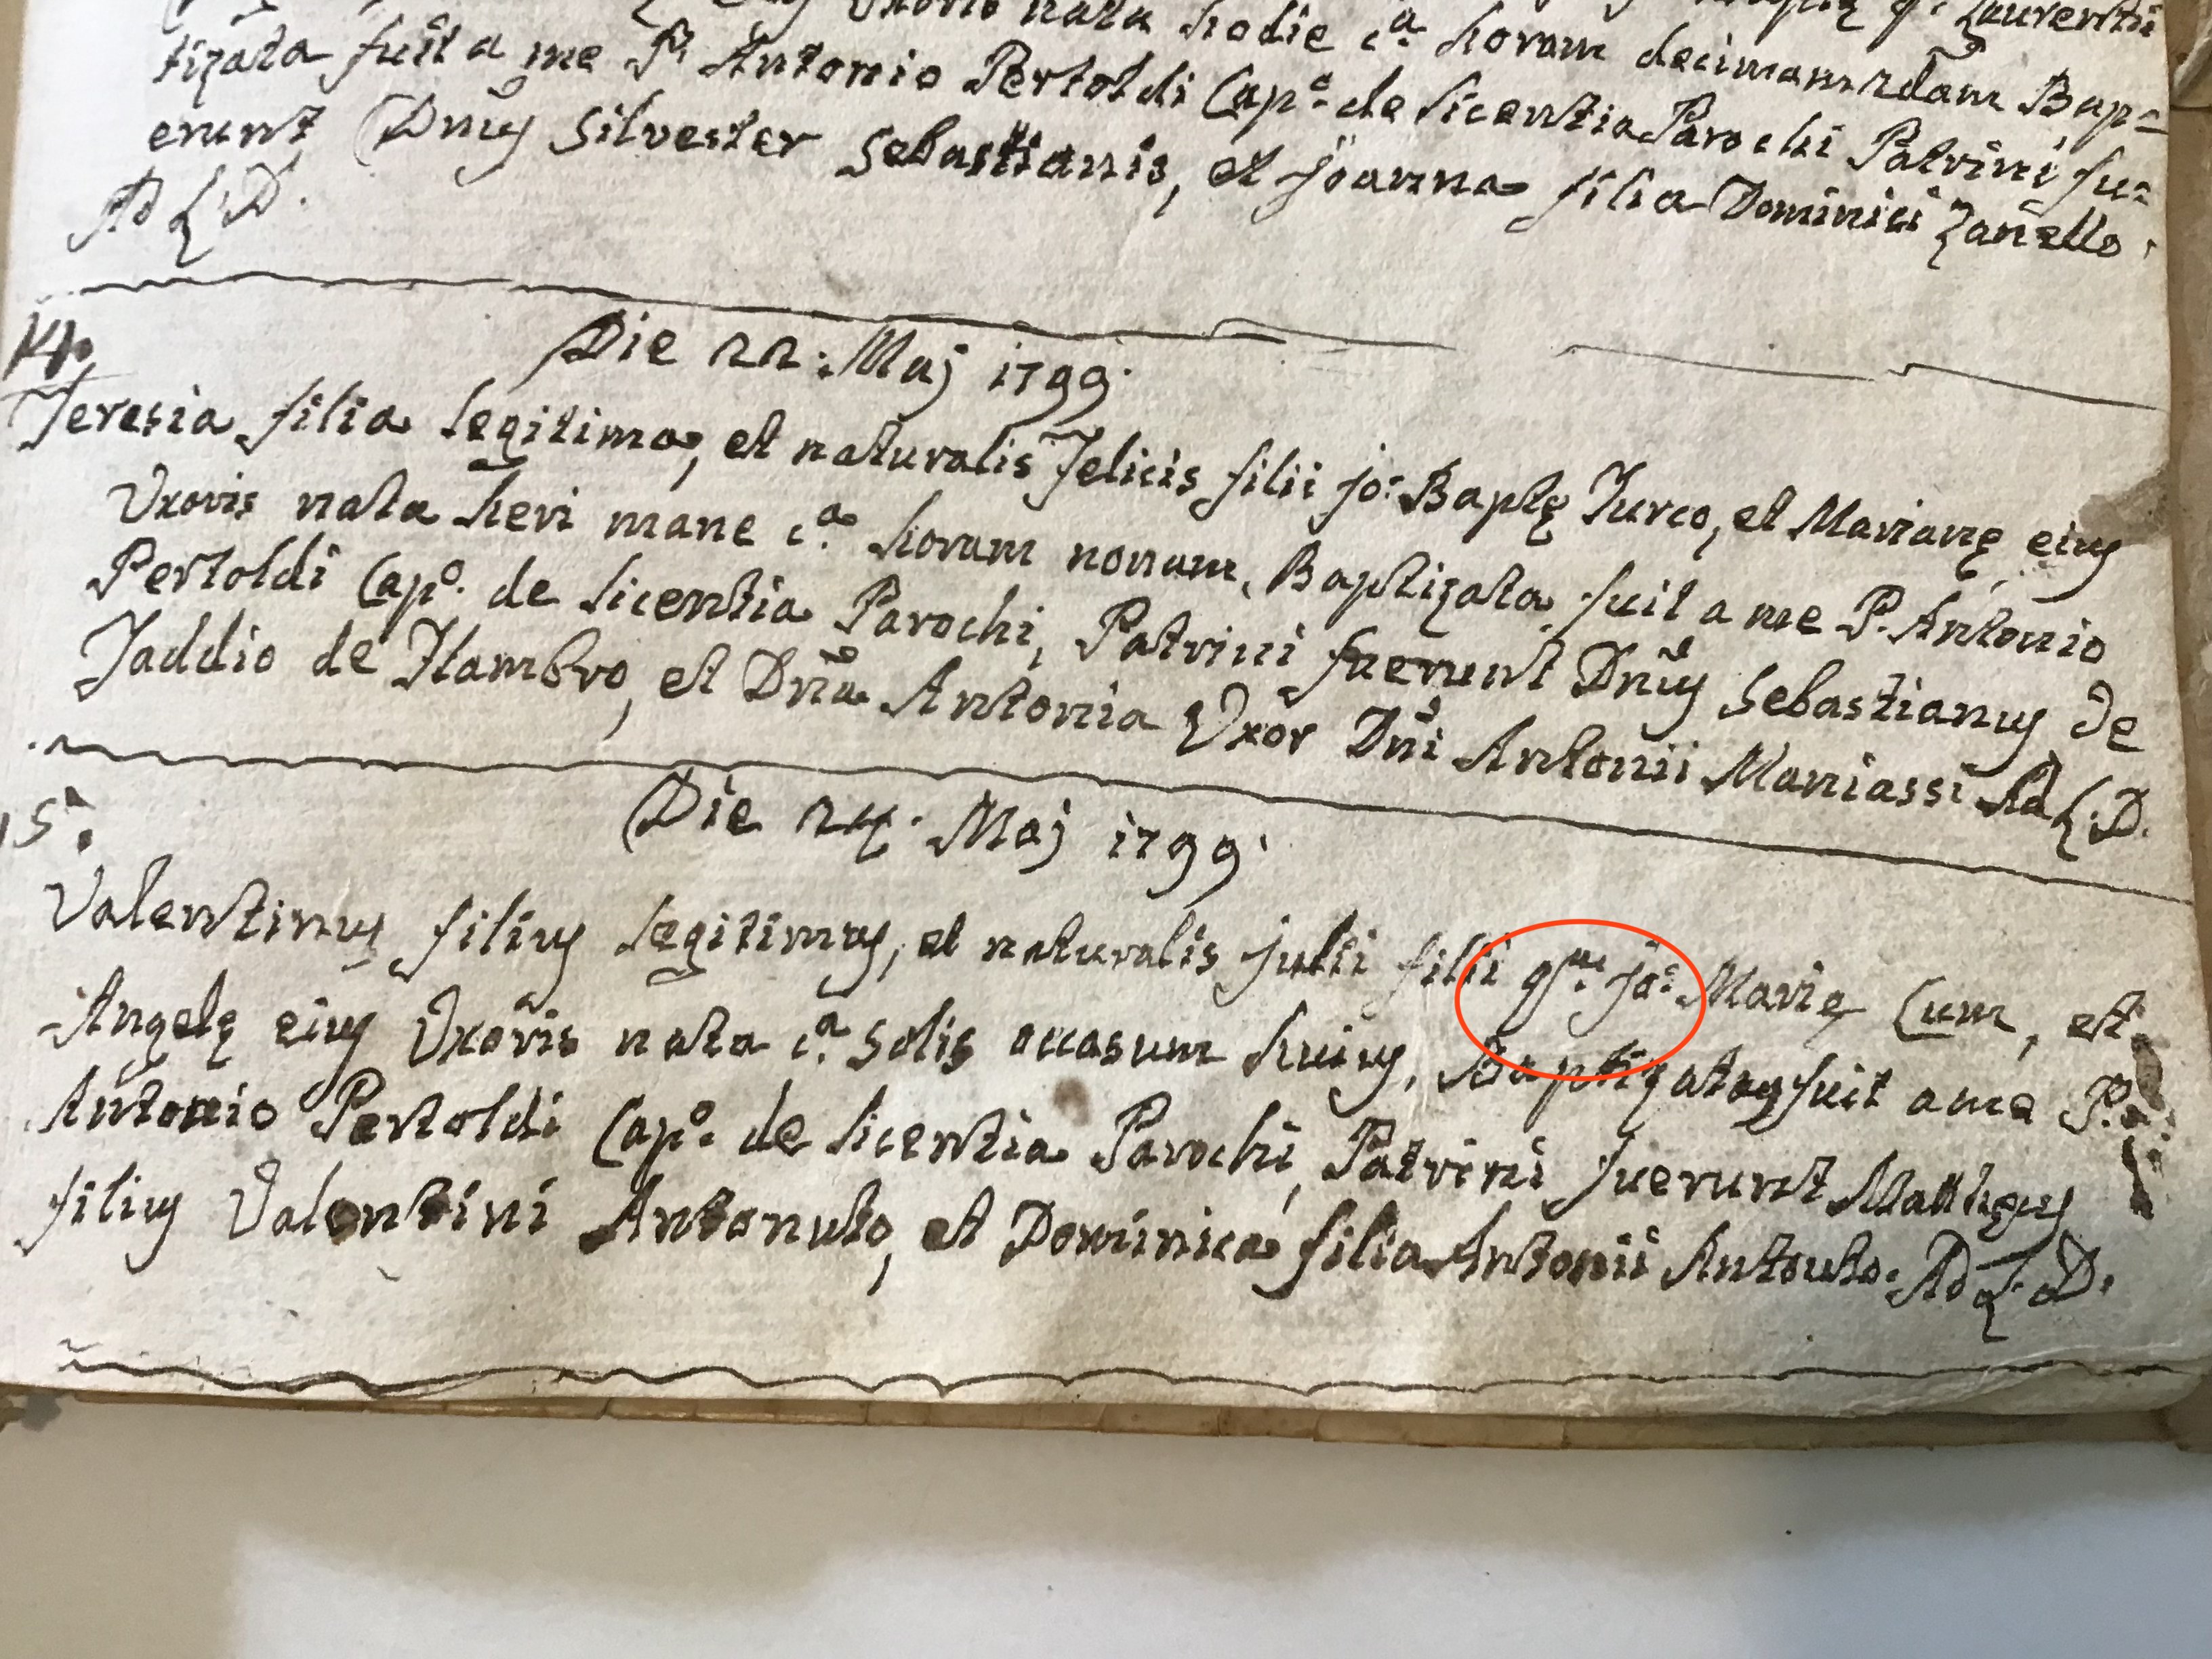 Uxoris nata hodie c.ª horam decimam 2dam Bap=
tizata fuit a me P. Antonio Pertoldi Cap.º de licentia Parochi Patrini fu=
erunt Dnus Silvester Sebastianis, et Joanna filia Dominici Zanello.
Ad L. D.
14.
Die 22. Maj 1799.
Teresia filia legitima, et naturalis Felicis filii Jo: Baptę Turco, et Marianę eius
Uxoris nata heri mane c.ª horam nonam, Baptizata fuit a me P. Antonio
Pertoldi Cap.º de licentia Parochi, Patrini fuerunt Dnus Sebastianus de
Taddio de Flambro, et Dna Antonia Uxor Dni Antonii Maniassi Ad L. D.
15.
Die 24. Maj 1799.
Valentinus filius legitimus, et naturalis Julii filii qm. Jo: Marię Cum, et
Angelę eius Uxoris nata c.ª solis occasum huius, Baptizatus fuit a me P.
Antonio Pertoldi Cap.º de licentia Parochi, Patrini fuerunt Matthęus
filius Valentini Antonuto, et Dominica filia Antonii Antonuto. Ad L. D.